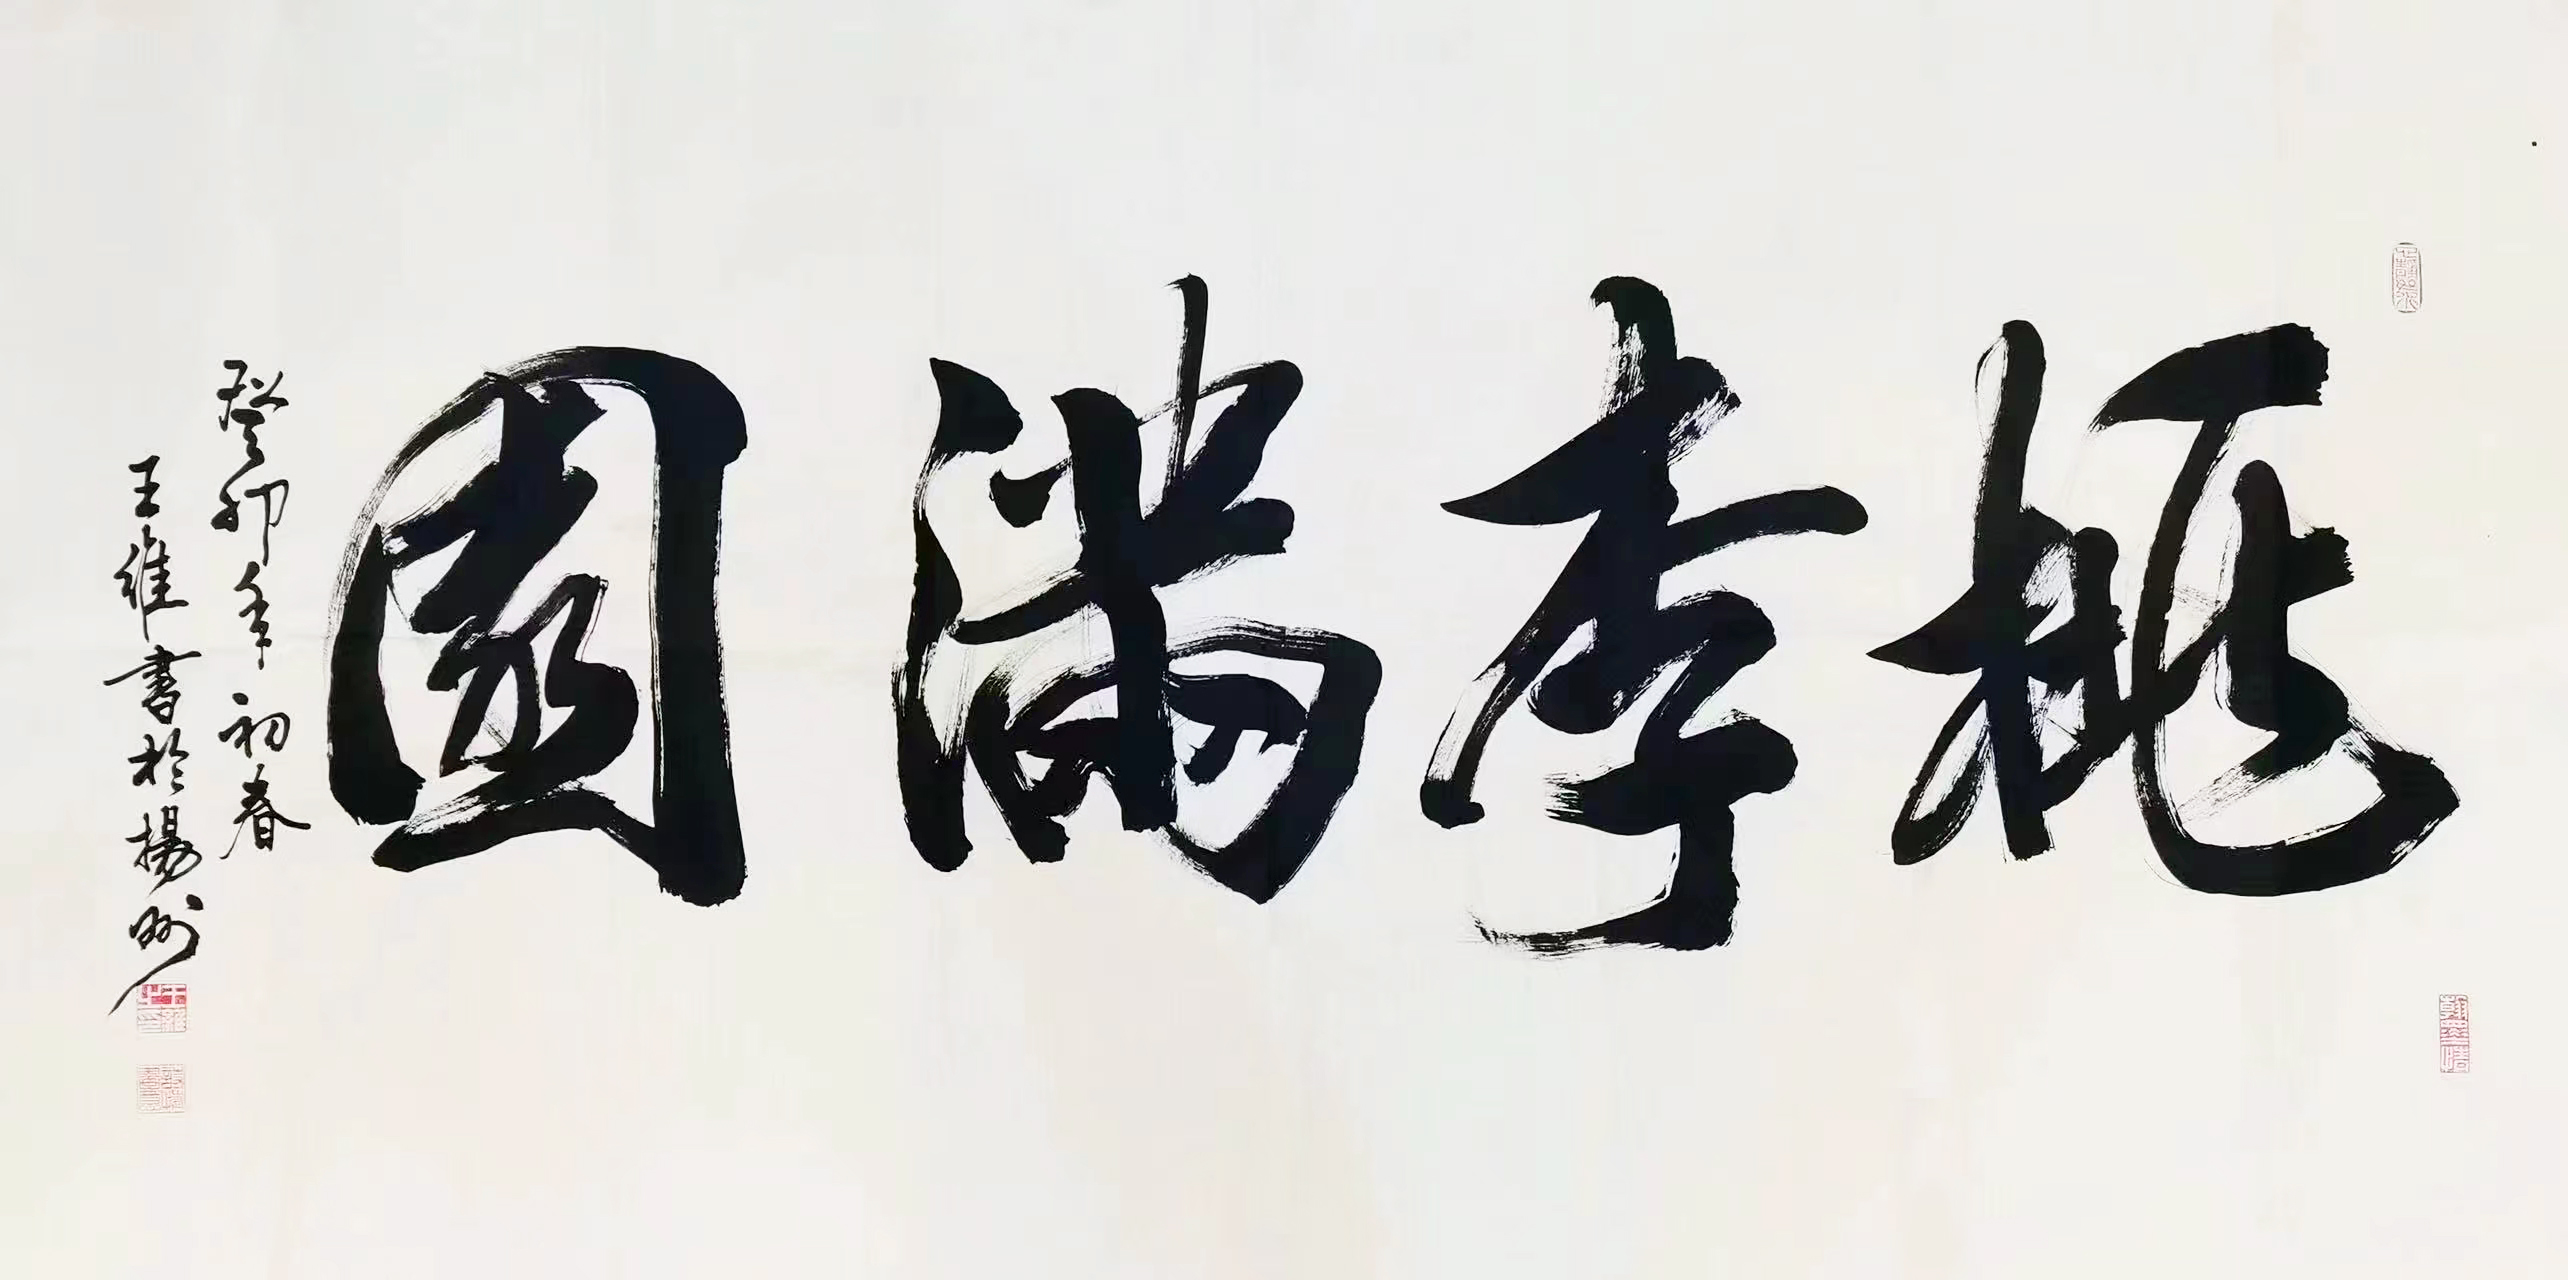 桃李滿園
癸卯年初春
王維書於揚州